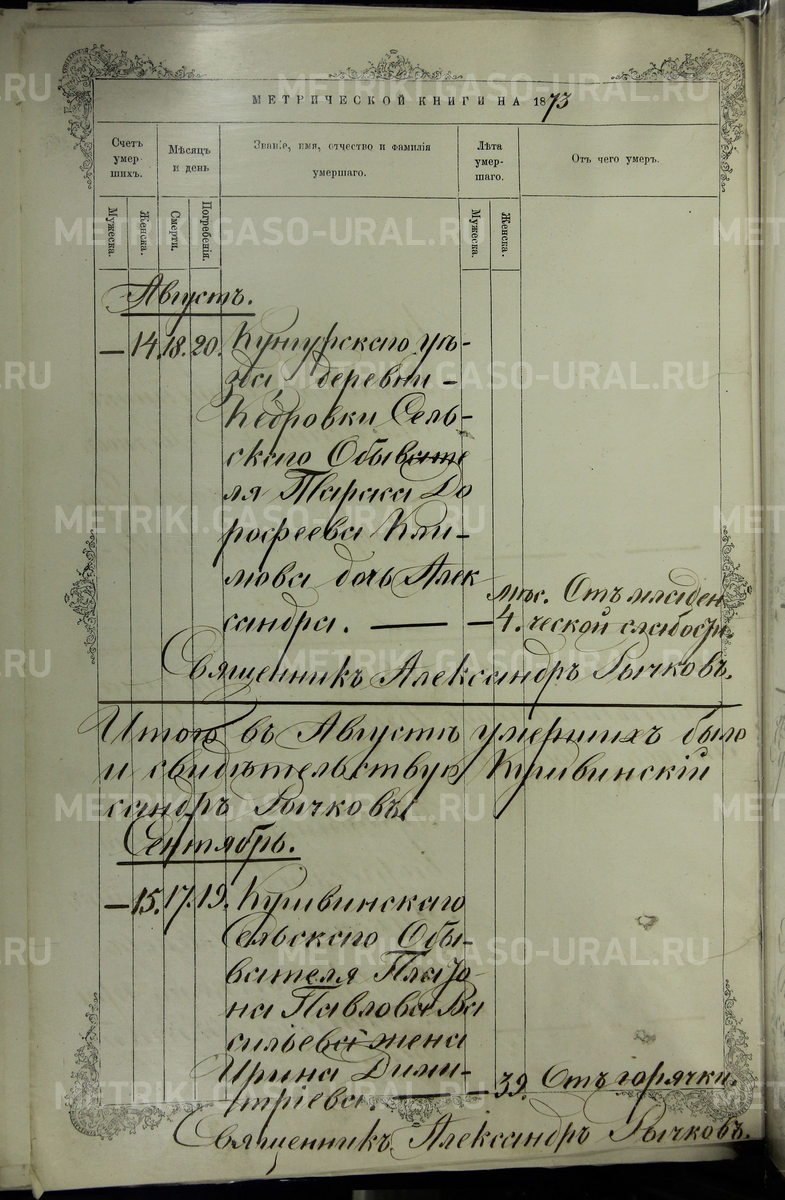 МЕТРИЧЕСКОЙ КНИГИ НА 1873
Счетъ умерших. Мѣсяцъ и день Званіе, имя, отчество и фамилія умершаго. Лѣта умершаго. Отъ чего умеръ.
Мужеска. Женска. Смерти. Погребенія. Мужеска. Женска.
Августъ.
— 14. 18. 20. Кунгурскаго уѣ-
зда, деревни -
Кедровки Сель-
скаго Обывате
ля Тараса До
рофеева Кли-
мова дочь Алек
сандра. — — мѣс. 4. Отъ младен
ческой слабости.
Священникъ Александръ Рычковъ.
Итого въ Августѣ умершихъ было
и свидѣтельствую Кушвинскій
сандръ Рычковъ
Сентябрь.
— 15. 17. 19. Кушвинскаго
Сельскаго Обы-
вателя Плато-
на Павлова Ва
сильева жена
Ирина Дими-
тріева. — — 39. Отъ горячки.
Священникъ Александръ Рычковъ.
METRIKI.GASO-URAL.RU